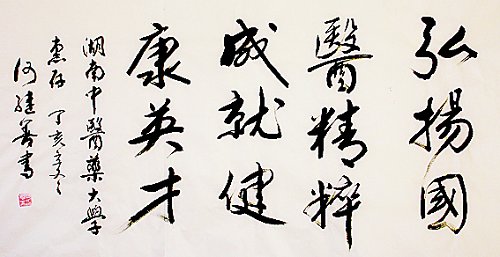 弘揚國
醫精粹
成就健
康英才
湖南中醫藥大學
惠存 丁亥之冬
何繼善書